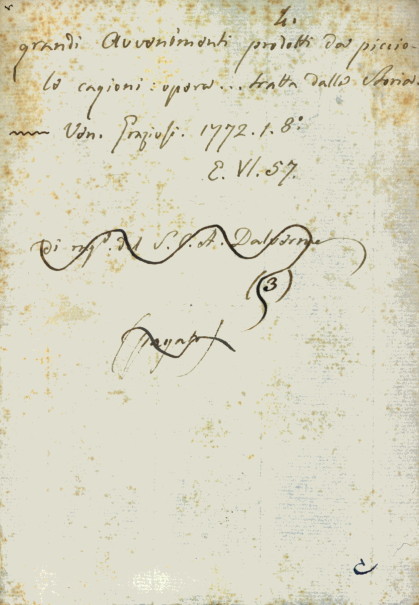 4.
grandi Avvenimenti prodotti da piccio-
le cagioni: opera... tratta dalla Storia.
Ven. Graziosi. 1772. 1. 8º
E. VI. 57.
Di del S. C. A. Dalverme
(3)
(Pagato)
C